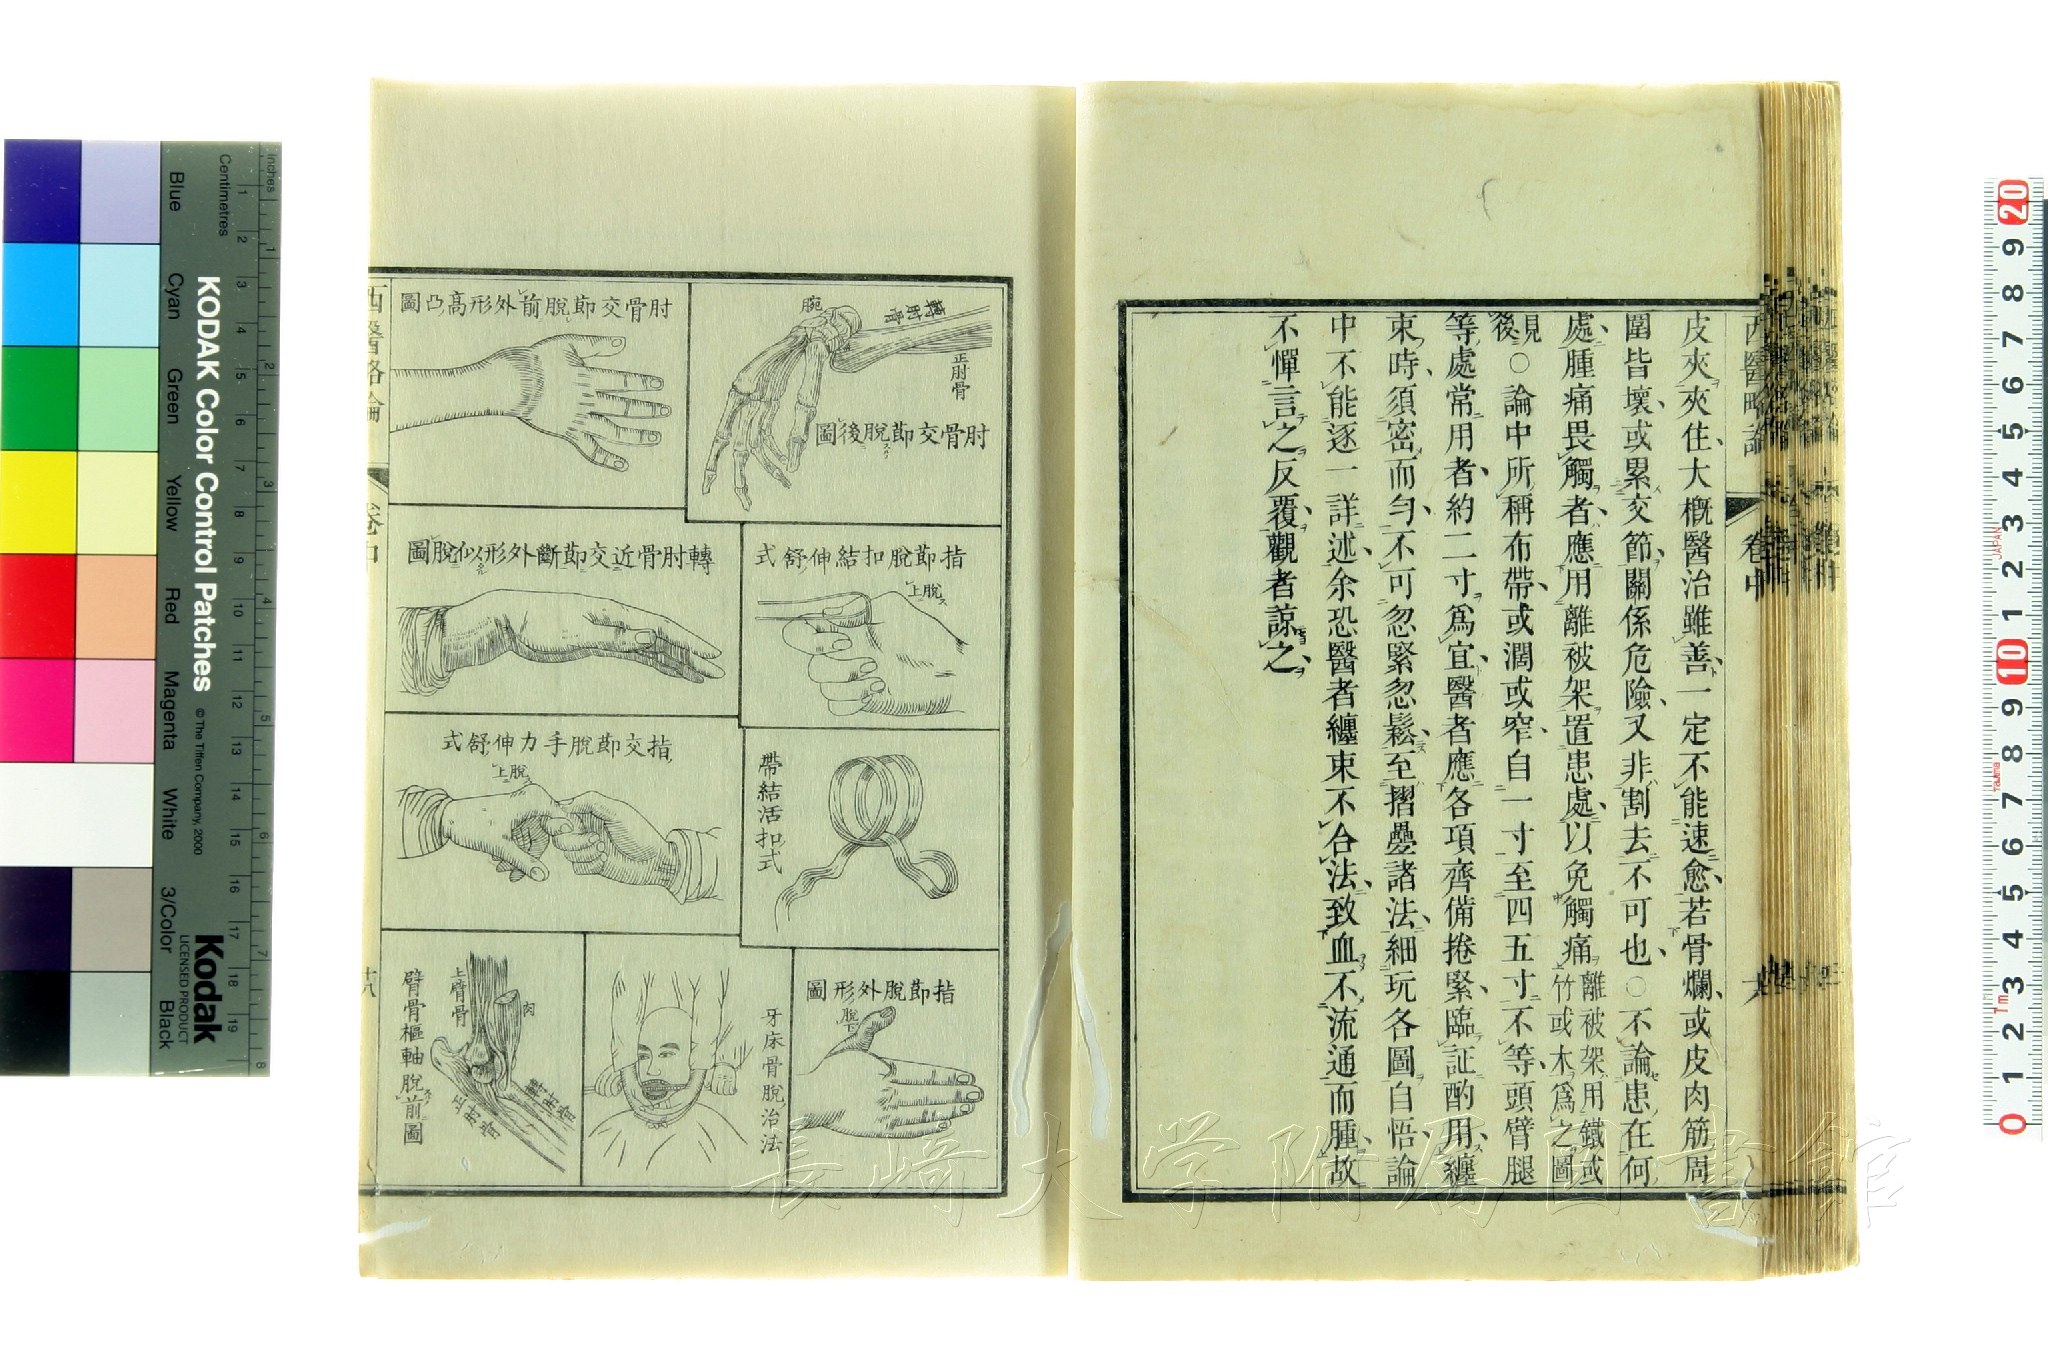 皮夾夾住大概醫治雖善一定不能速愈若骨爛或皮肉筋周
圍皆壞或累交節關係危險又非割去不可也○不論患在何
處腫痛畏觸者應用離被架置患處以免觸痛離被架用鐵或
竹或木爲之圖
見
後○論中所稱布帶或濶或窄自一寸至四五寸不等頭臂腿
等處常用者約二寸爲宜醫者應各項齊備捲緊臨証酌用纏
束時須密而勻不可忽緊忽鬆至摺疊諸法細玩各圖自悟論
中不能逐一詳述余恐醫者纏束不合法致血不流通而腫故
不憚言之反覆觀者諒之
西醫略論
卷中
肘骨交節脫後圖
腕
轉肘骨
正肘骨
肘骨交節脫前外形高凸圖
指節脫扣結伸舒式
上脫
轉肘骨近交節斷外形似脫圖
帶結活扣式
指交節脫手力伸舒式
上脫
指節脫外形圖
脫下
牙床骨脫治法
臂骨樞軸脫前圖
上臂骨
肉
轉肘骨
正肘骨
西醫略論
卷中
十八
長崎大学附属図書館
KODAK Color Control Patches
© The Tiffen Company, 2000
Kodak
LICENSED PRODUCT
Inches
Centimetres
1 2 3 4 5 6 7 8 9 10 11 12 13 14 15 16 17 18 19
1 2 3 4 5 6 7 8
Blue
Cyan
Green
Yellow
Red
Magenta
White
3/Color
Black
20 9 8 7 6 5 4 3 2 1 10 9 8 7 6 5 4 3 2 1 0
JAPAN